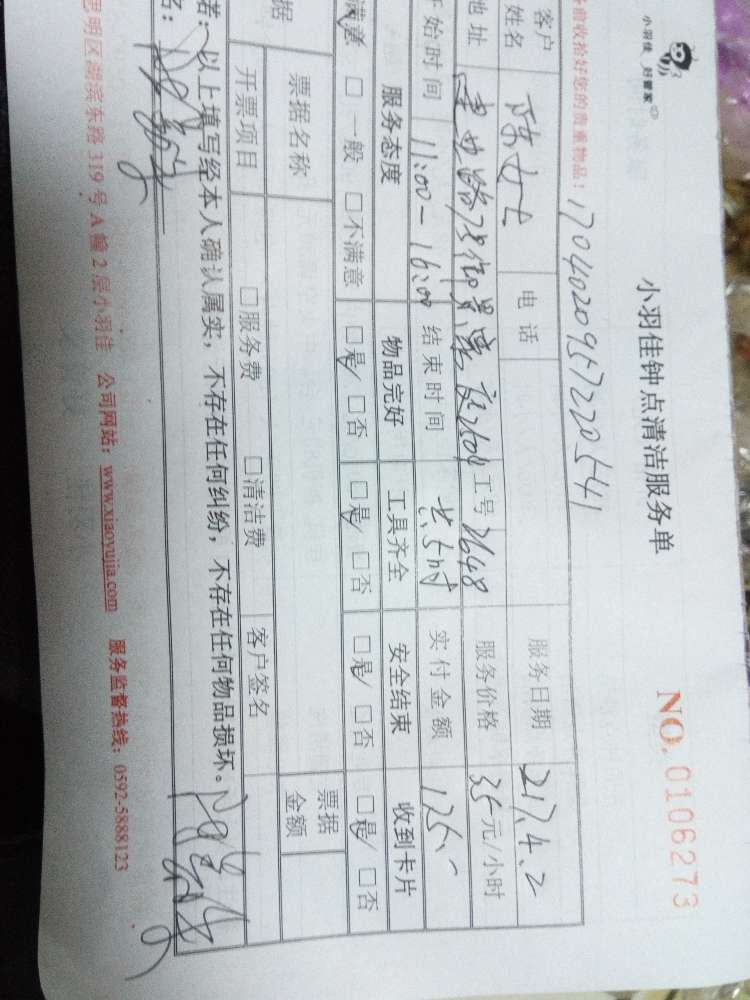 小羽佳 好管家
小羽佳钟点清洁服务单
NO. 0106273
前收拾好您的贵重物品！
170402095722205541
客户姓名 陈女士 电话 服务日期 217.4.2
地址 2604 工号 2648 服务价格 35元/小时
开始时间 11:00-16:00 结束时间 共5时 实付金额 175.
服务态度 物品完好 工具齐全 安全结束 收到卡片
满意 □一般 □不满意 □是 □否 □是 □否 □是 □否 □是 □否
据 票据名称 票据金额
开票项目 □服务费 □清洁费 客户签名
者：以上填写经本人确认属实，不存在任何纠纷，不存在任何物品损坏。
名：
思明区湖滨东路319号A幢2层小羽佳 公司网站：www.xiaoyujia.com 服务监督热线：0592-5888123